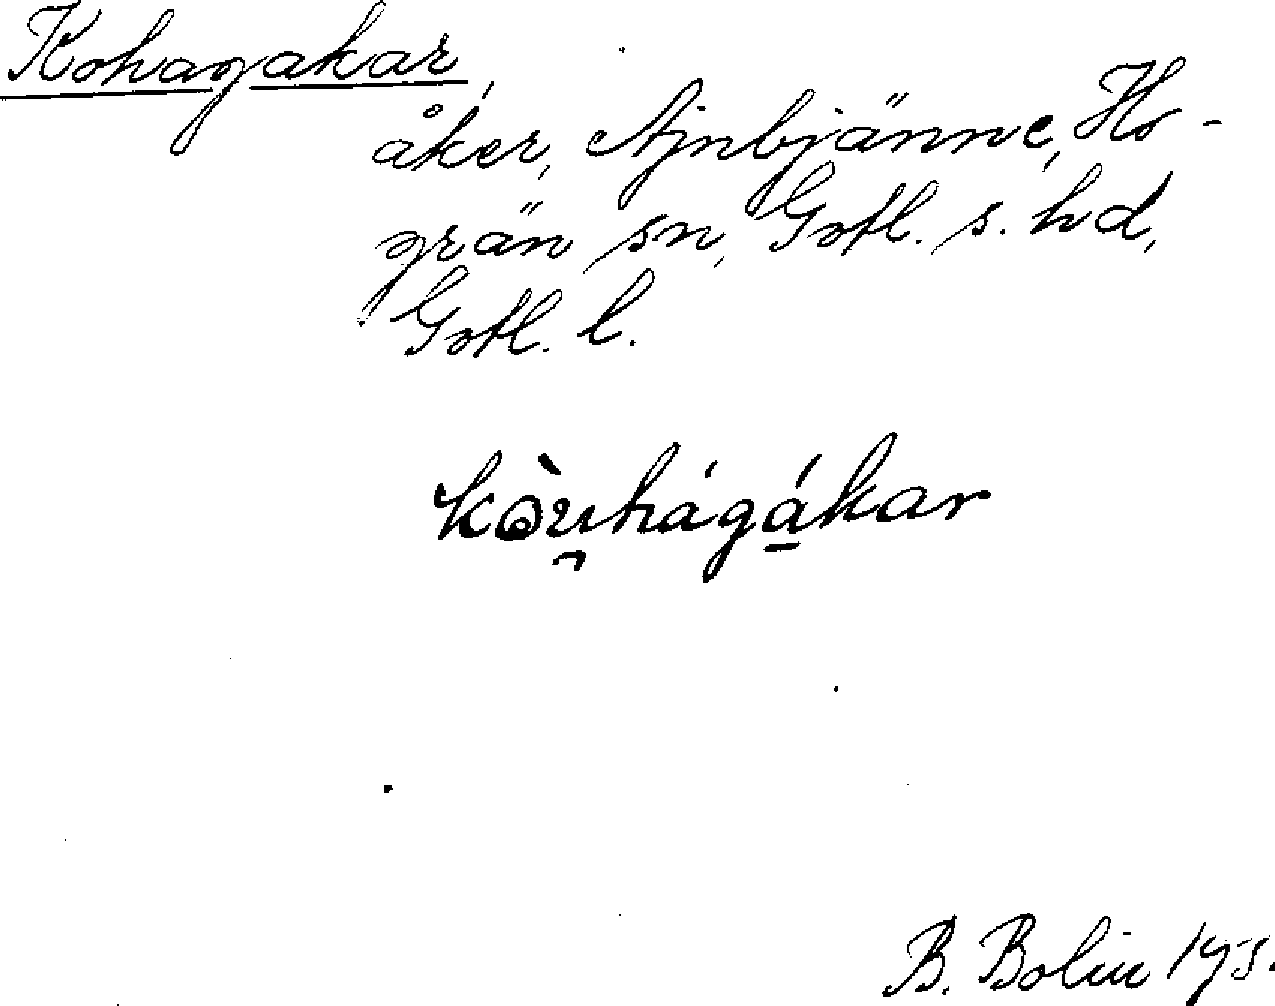 Kohagakar,
åker, Ajnbjänne, Ho-
grän sn, Gotl. s. hd,
Gotl. l.
kòu̯hágákar
B. Bolin